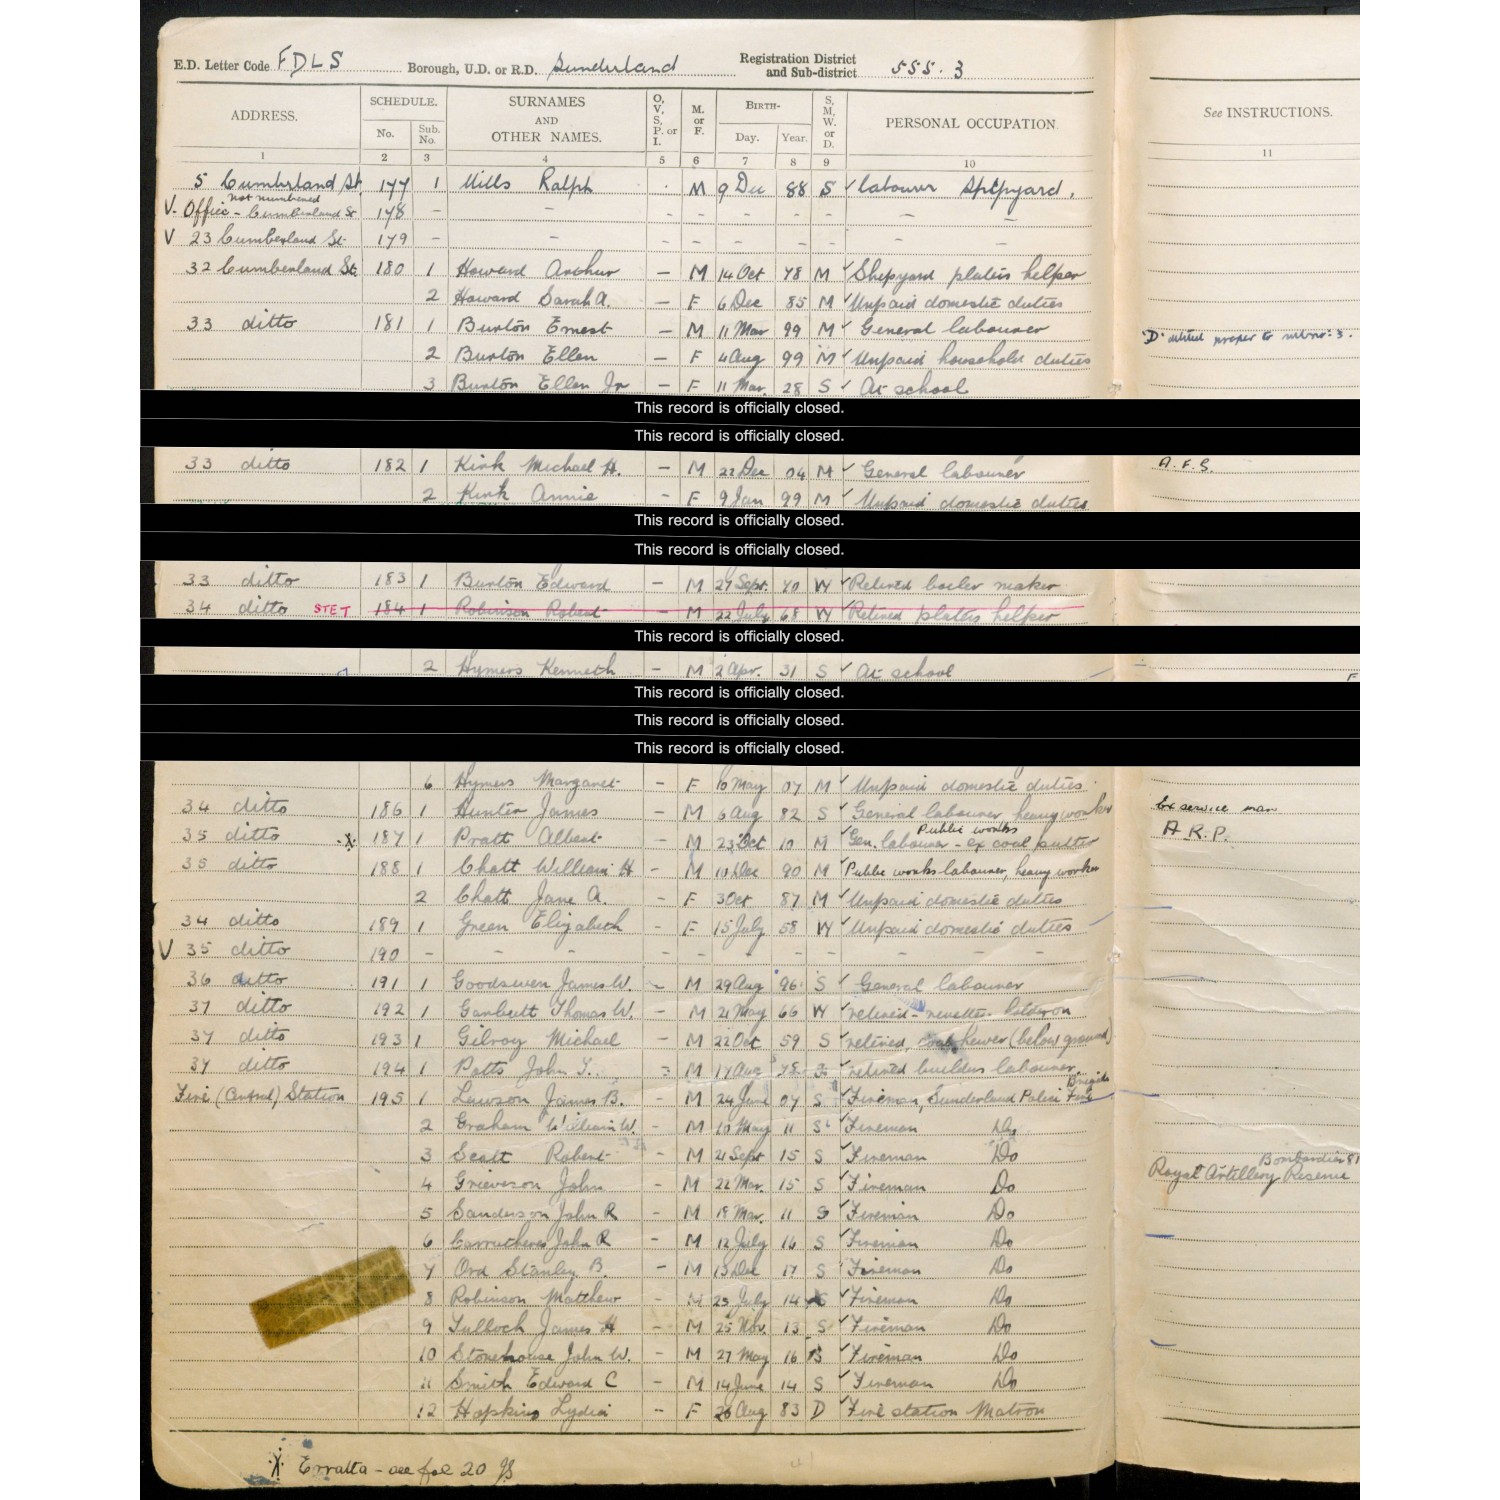 E.D. Letter Code FDLS Borough, U.D. or R.D. Sunderland Registration District and Sub-district 555. 3
ADDRESS. SCHEDULE. No. Sub. No. SURNAMES AND OTHER NAMES. O, V, S, P. or I. M. or F. BIRTH- Day. Year. S, M, W. or D. PERSONAL OCCUPATION See INSTRUCTIONS.
1 2 3 4 5 6 7 8 9 10 11
5 Cumberland St. 177 1 Mills Ralph M 9 Dec 88 S ✓ labourer Shipyard.
V. Office - not numbered Cumberland St 178 - - - - - - - -
V 23 Cumberland St. 179 - - - - - - - -
32 Cumberland St. 180 1 Howard Arthur - M 14 Oct 78 M ✓ Shipyard platers helper
2 Howard Sarah A. - F 6 Dec 85 M ✓ Unpaid domestic duties
33 ditto 181 1 Burton Ernest - M 11 Mar 99 M ✓ General labourer "D" proper to 3.
2 Burton Ellen - F 4 Aug 99 M ✓ Unpaid household duties
3 Burton Ellen Jr - F 11 Mar. 28 S ✓ At school
This record is officially closed.
This record is officially closed.
33 ditto 182 1 Kirk Michael H. - M 22 Dec 04 M ✓ General labourer A.F.S.
2 Kirk Annie - F 9 Jan 99 M ✓ Unpaid domestic duties
This record is officially closed.
This record is officially closed.
33 ditto 183 1 Burton Edward - M 27 Sept. 70 W ✓ Retired boiler maker
34 ditto STET 184 1 Robinson Robert - M 22 July 68 W ✓ Retired platers helper
This record is officially closed.
2 Hymers Kenneth - M 2 Apr. 31 S ✓ At school
This record is officially closed.
This record is officially closed.
This record is officially closed.
6 Hymers Margaret - F 10 May 07 M ✓ Unpaid domestic duties
34 ditto 186 1 Hunter James - M 6 Aug 82 S ✓ General labourer, heavy worker Ex service man
35 ditto X 187 1 Pratt Albert - M 23 Oct 10 M ✓ Gen. labourer Public works - ex coal putter A.R.P.
35 ditto 188 1 Chatt William H - M 10 Dec 90 M ✓ Public works labourer, heavy worker
2 Chatt Jane A. - F 3 Oct 87 M ✓ Unpaid domestic duties
34 ditto 189 1 Green Elizabeth - F 15 July 58 W ✓ Unpaid domestic duties
V 35 ditto 190 - - - - - - - - -
36 ditto 191 1 Goodswen James W. - M 29 Aug 96 S ✓ General labourer
37 ditto 192 1 Garbutt Thomas W. - M 21 May 66 W ✓ retired - rivetter
37 ditto 193 1 Gilroy Michael M 22 Oct 59 S ✓ retired, coal hewer (below ground)
37 ditto 194 1 Potts John T. - M 17 Aug 78 ✓ retired builders labourer
Fire (Central) Station 195 1 Lawson James B. - M 24 June 07 S ✓ Fireman, Sunderland Police Fire Brigade
2 Graham William W. - M 10 May 11 S ✓ Fireman Do
3 Scott Robert - M 21 Sept 15 S ✓ Fireman Do
4 Grieveson John - M 22 Mar. 15 S ✓ Fireman Do Royal Artillery Reserve Bombardier
5 Sanderson John R - M 18 Mar. 11 S ✓ Fireman Do
6 Carruthers John R - M 12 July 16 S ✓ Fireman Do
7 Ord Stanley B. - M 13 Dec 17 S ✓ Fireman Do
8 Robinson Matthew - M 23 July 14 S ✓ Fireman Do
9 Tulloch James H - M 25 Nov. 13 S ✓ Fireman Do
10 Stonehouse John W. - M 27 May 16 S ✓ Fireman Do
11 Smith Edward C - M 14 June 14 S ✓ Fireman Do
12 Hopkins Lydia - F 26 Aug 83 D ✓ Fire station Matron
X Erratta - see fol 20